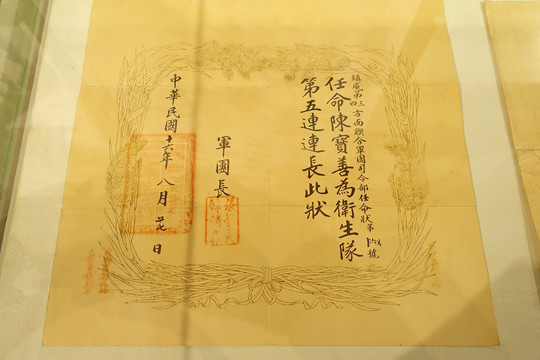 鎮威第三四方面聯合軍團司令部任命狀第號
任命陳寶善為衛生隊
第五連連長此狀
軍團長
中華民國十六年八月廿日